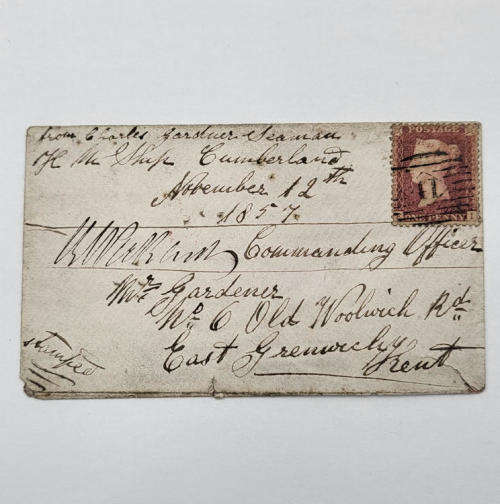 from Charles Gardner Seaman
of H M Ship Cumberland
November 12th
1857
Commanding Officer
Mrs Gardener
No 6 Old Woolwich Rd
East Greenwich
Kent
stamped
POSTAGE
ONE PENNY